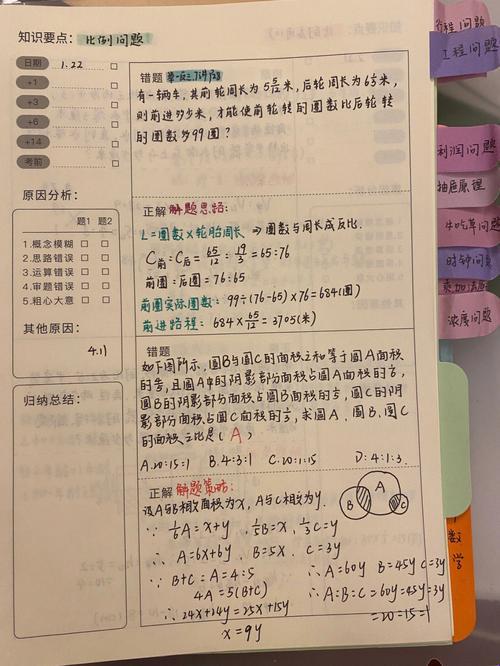 知识要点：比例问题
日期 1.22
+1
+3
+6
+14
考前
原因分析：
题1 题2
1.概念模糊
2.思路错误
3.运算错误
4.审题错误
5.粗心大意
其他原因：
4.11
归纳总结：
错题 举一反三
有一辆车，其前轮周长为5 5/12米，后轮周长为6 1/3米，
则前进多少米，才能使前轮转的圈数比后轮转
的圈数多99圈？
正解 解题思路：
L=圈数×轮胎周长 ⇒圈数与周长成反比.
C前:C后=65/12:19/3=65:76
前圈:后圈=76:65
前圈实际圈数：99÷(76-65)×76=684(圈)
前进路程：684×65/12=3705(米)
错题
如下图所示，圆B与圆C的面积之和等于圆A面积
的4/5，且圆A中的阴影部分面积占圆A面积的1/6，
圆B的阴影部分面积占圆B面积的1/5，圆C的阴
影部分面积占圆C面积的1/3，求圆A、圆B、圆C
的面积之比是（A）
A.20:15:1 B.4:3:1 C.20:1:15 D:4:1:3
正解 解题策略：
设A与B相交面积为x，A与C相交为y.
A
B
C
∵ 1/6A=x+y，1/5B=x，1/3C=y
∴ A=6x+6y，B=5x，C=3y
∵ B+C:A=4:5
4A=5(B+C)
∴ 24x+24y=25x+15y
x=9y
∴A=60y B=45y C=3y
∴A:B:C=60y:45y:3y
=20:15:1
行程问题
工程问题
利润问题
抽屉原理
牛吃草问题
时钟问题
浓度问题
数
学